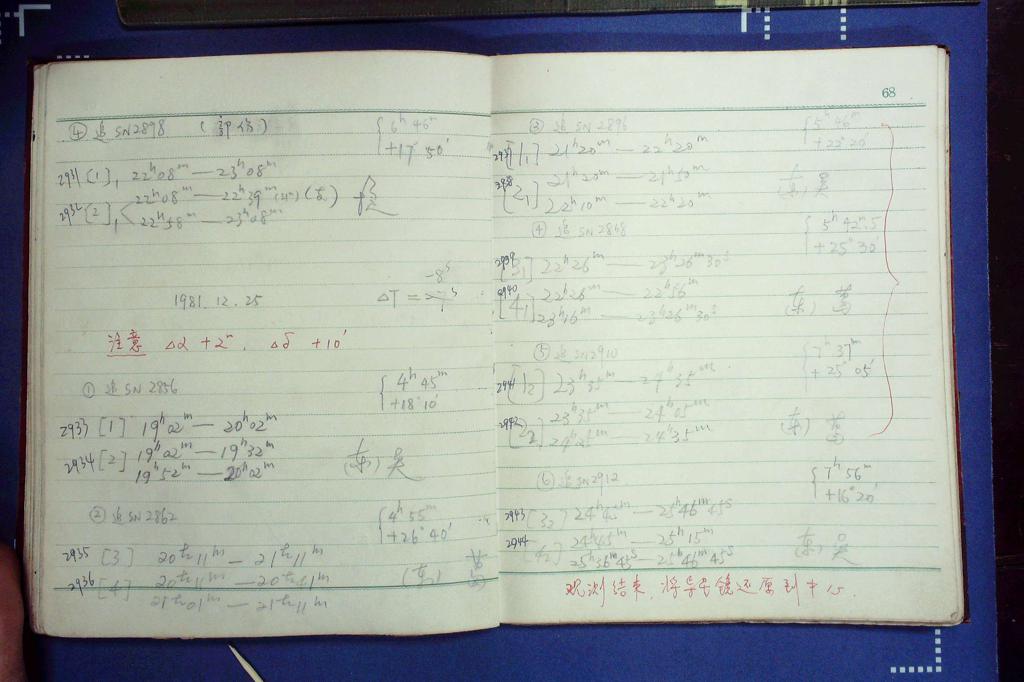 ④ 追 SN2898 (部份) { 6ʰ 46ᵐ
+17° 50′
2931 [1], 22ʰ08ᵐ — 23ʰ08ᵐ
2932 [2], 22ʰ08ᵐ — 22ʰ39ᵐ (东)
22ʰ58ᵐ — 23ʰ08ᵐ
1981.12.25 ΔT = -8ˢ
注意 Δα +2ᵐ. Δδ +10′
① 追 SN 2856 { 4ʰ 45ᵐ
+18° 10′
2933 [1] 19ʰ02ᵐ — 20ʰ02ᵐ
2934 [2] 19ʰ02ᵐ — 19ʰ32ᵐ (东) 吴
19ʰ52ᵐ — 20ʰ02ᵐ
② 追 SN 2862 { 4ʰ 55ᵐ
+26° 40′
2935 [3] 20ʰ11ᵐ — 21ʰ11ᵐ
2936 [4] 20ʰ11ᵐ — 20ʰ41ᵐ (东)
21ʰ01ᵐ — 21ʰ11ᵐ
68
③ 追 SN 2896 { 5ʰ 46ᵐ
+22° 20′
2937 [1₁] 21ʰ20ᵐ — 22ʰ20ᵐ
2938 [2₁] 21ʰ20ᵐ — 21ʰ50ᵐ (东) 吴
22ʰ10ᵐ — 22ʰ20ᵐ
④ 追 SN 2868 { 5ʰ 42ᵐ.5
+25° 30′
2939 [3₁] 22ʰ26ᵐ — 23ʰ26ᵐ30ˢ
2940 [4₁] 22ʰ26ᵐ — 22ʰ56ᵐ (东)
23ʰ16ᵐ — 23ʰ26ᵐ30ˢ
⑤ 追 SN 2910 { 7ʰ 37ᵐ
+25° 05′
2941 [1₂] 23ʰ35ᵐ — 24ʰ35ᵐ
2942 [2₂] 23ʰ35ᵐ — 24ʰ05ᵐ (东)
24ʰ25ᵐ — 24ʰ35ᵐ
⑥ 追 SN 2912 { 7ʰ 56ᵐ
+16° 20′
2943 [3₂] 24ʰ45ᵐ — 25ʰ46ᵐ45ˢ
2944 [4₂] 24ʰ45ᵐ — 25ʰ15ᵐ (东) 吴
25ʰ36ᵐ45ˢ — 25ʰ46ᵐ45ˢ
观测结束, 将导星镜还原到中心.